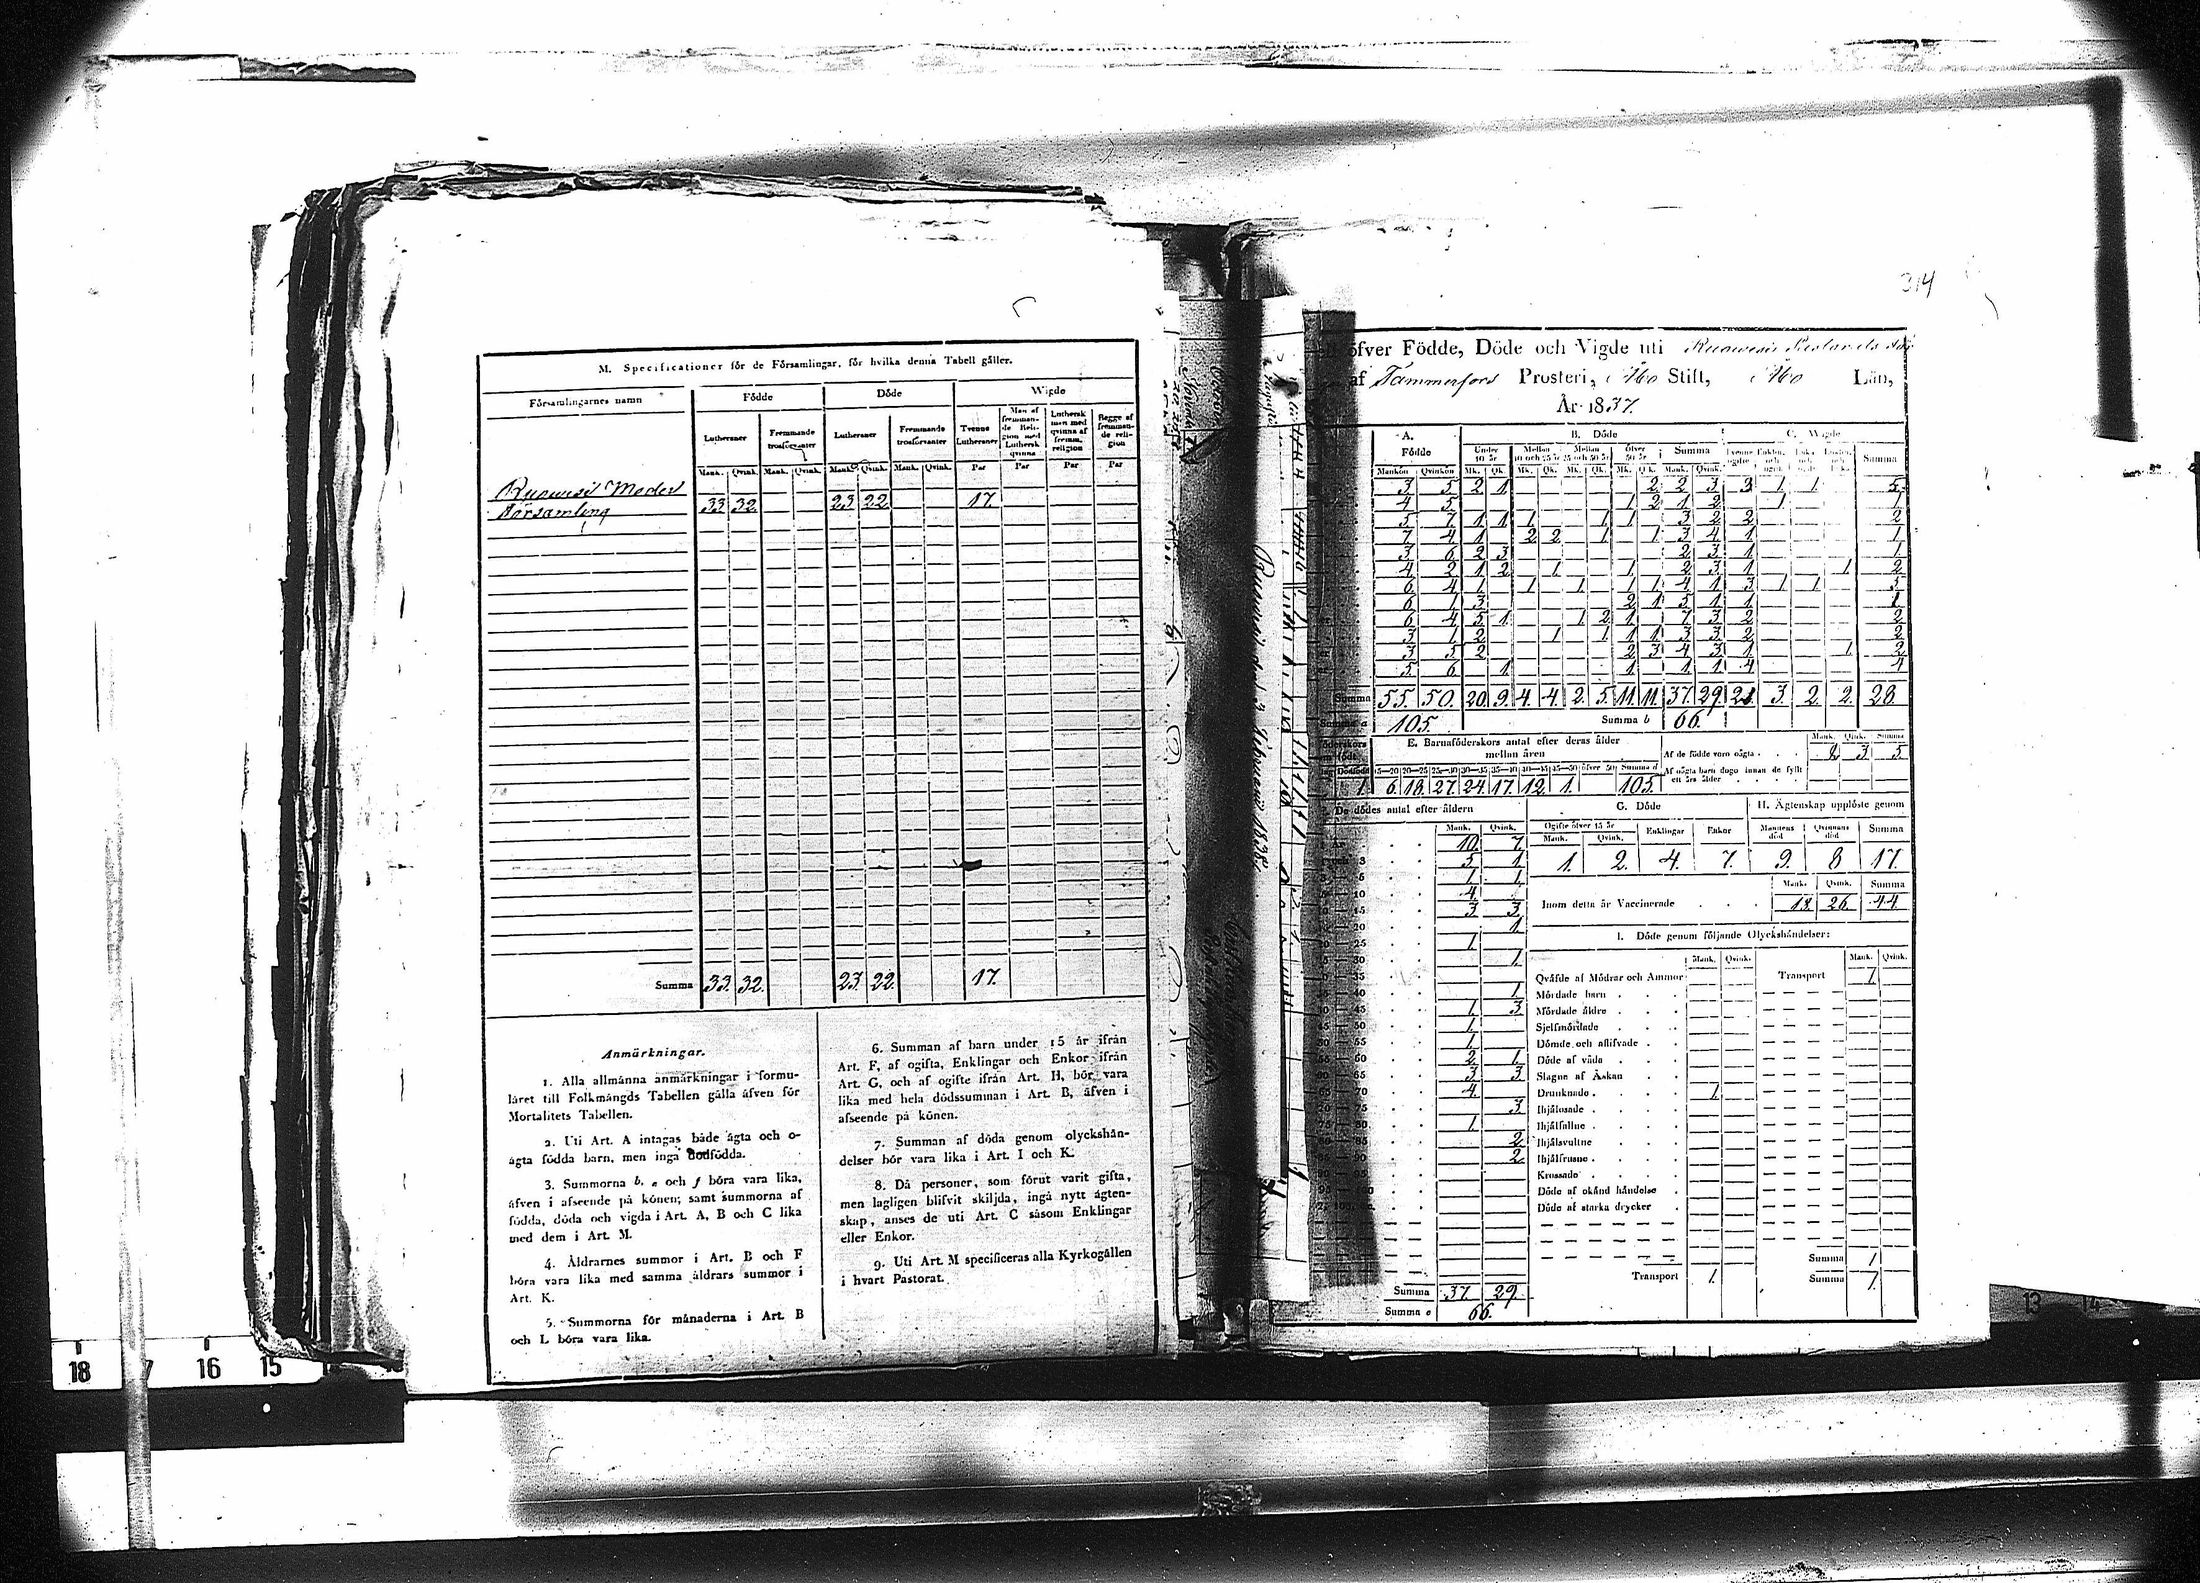 M. Specificationer för de Församlingar, för hvilka denna Tabell gäller.
Församlingarnes namn
Födde
Döde
Wigde
Lutheraner
Fremmande trosförvanter
Lutheraner
Fremmande trosförvanter
Tvenne Lutheraner
Man af fremmande Religion med Luthersk qvinna
Luthersk man med qvinna af fremm. religion
Begge af fremmande religion
Mank. Qvink. Mank. Qvink. Mank. Qvink. Mank. Qvink. Par Par Par Par
Ruowesi Moder
Församling 33 32 23 22 17.
Summa 33. 32. 23. 22. 17.
Anmärkningar.
1. Alla allmänna anmärkningar i formu-
läret till Folkmängds Tabellen gälla äfven för
Mortalitets Tabellen.
2. Uti Art. A intagas både ägta och o-
ägta födda barn, men inga dödfödda.
3. Summorna b, e och f böra vara lika,
äfven i afseende på könen; samt summorna af
födda, döda och vigda i Art. A, B och C lika
med dem i Art. M.
4. Åldrarnes summor i Art. B och F
böra vara lika med samma åldrars summor i
Art. K.
5. Summorna för månaderna i Art. B
och L böra vara lika.
6. Summan af barn under 15 år ifrån
Art. F, af ogifta, Enklingar och Enkor ifrån
Art. G, och af ogifte ifrån Art. H, bör vara
lika med hela dödssumman i Art. B, äfven i
afseende på könen.
7. Summan af döda genom olyckshän-
delser bör vara lika i Art. I och K.
8. Då personer, som förut varit gifta,
men lagligen blifvit skiljda, ingå nytt ägten-
skap, anses de uti Art. C såsom Enklingar
eller Enkor.
9. Uti Art. M specificeras alla Kyrkogällen
i hvart Pastorat.
314
öfver Födde, Döde och Vigde uti Ruowesi
af Tammerfors Prosteri, Åbo Stift, Åbo Län,
År 1837.
A. Födde
B. Döde
C. Wigde
Under 10 år
Mellan 10 och 25 år
Mellan 25 och 50 år
Öfver 50 år
Summa
Summa
Mankön Qvinkön Mk. Qk. Mk. Qk. Mk. Qk. Mk. Qk. Mank. Qvink.
3 5 2 1 2 2 3 3 1 1 5
4 5 1 2 1 2 1 1
5 7 1 1 1 1 1 3 2 2 2
7 4 1 2 2 1 1 3 4 1 1
3 6 2 3 2 3 1 1
4 2 1 2 1 1 2 3 1 1 2
6 4 1 1 1 1 1 4 1 3 1 1 5
6 1 3 2 1 5 1 1 1
6 4 5 1 1 2 1 7 3 2 2
3 1 2 1 1 1 1 3 3 2 2
3 5 2 2 3 4 3 1 1 2
5 6 1 1 1 1 4 4
Summa 55. 50. 20. 9. 4. 4. 2. 5. 11. 11. 37. 29. 21 3. 2. 2. 28.
Summa a 105. Summa b 66.
E. Barnaföderskors antal efter deras ålder
mellan åren
15—20 20—25 25—30 30—35 35—40 40—45 45—50 öfver 50 Summa d
1. 6. 18. 27. 24. 17. 12. 1. 105.
Mank. Qvink. Summa
Af de födde voro oägta 2 3 5
Af oägta barn dogo innan de fyllt
ett års ålder
De dödes antal efter åldern
Mank. Qvink.
10. 7.
5. 1.
1. 1.
4.
3. 3.
1.
1.
1.
1.
1. 3.
1.
1.
2. 1.
3. 3.
4.
3.
1.
2.
2.
Summa 37. 29.
Summa e 66.
G. Döde
Ogifte öfver 15 år
Mank. Qvink.
Enklingar
Enkor
1. 2. 4. 7.
H. Ägtenskap upplöste genom
Mannens död
Qvinnans död
Summa
9. 8 17.
Mank. Qvink. Summa
Inom detta år Vaccinerade 18. 26. 44.
I. Döde genom följande Olyckshändelser:
Mank. Qvink. Mank. Qvink.
Qväfde af Mödrar och Ammor Transport 1
Mördade barn
Mördade äldre
Sjelfmördade
Dömde och aflifvade
Döde af våda
Slagne af Åskan
Drunknade 1.
Ihjälosade
Ihjälfallne
Ihjälsvultne
Ihjälfrusne
Krossade
Döde af okänd händelse
Döde af starka drycker
Summa 1
Transport 1. Summa 1.
18 17 16 15
13 14